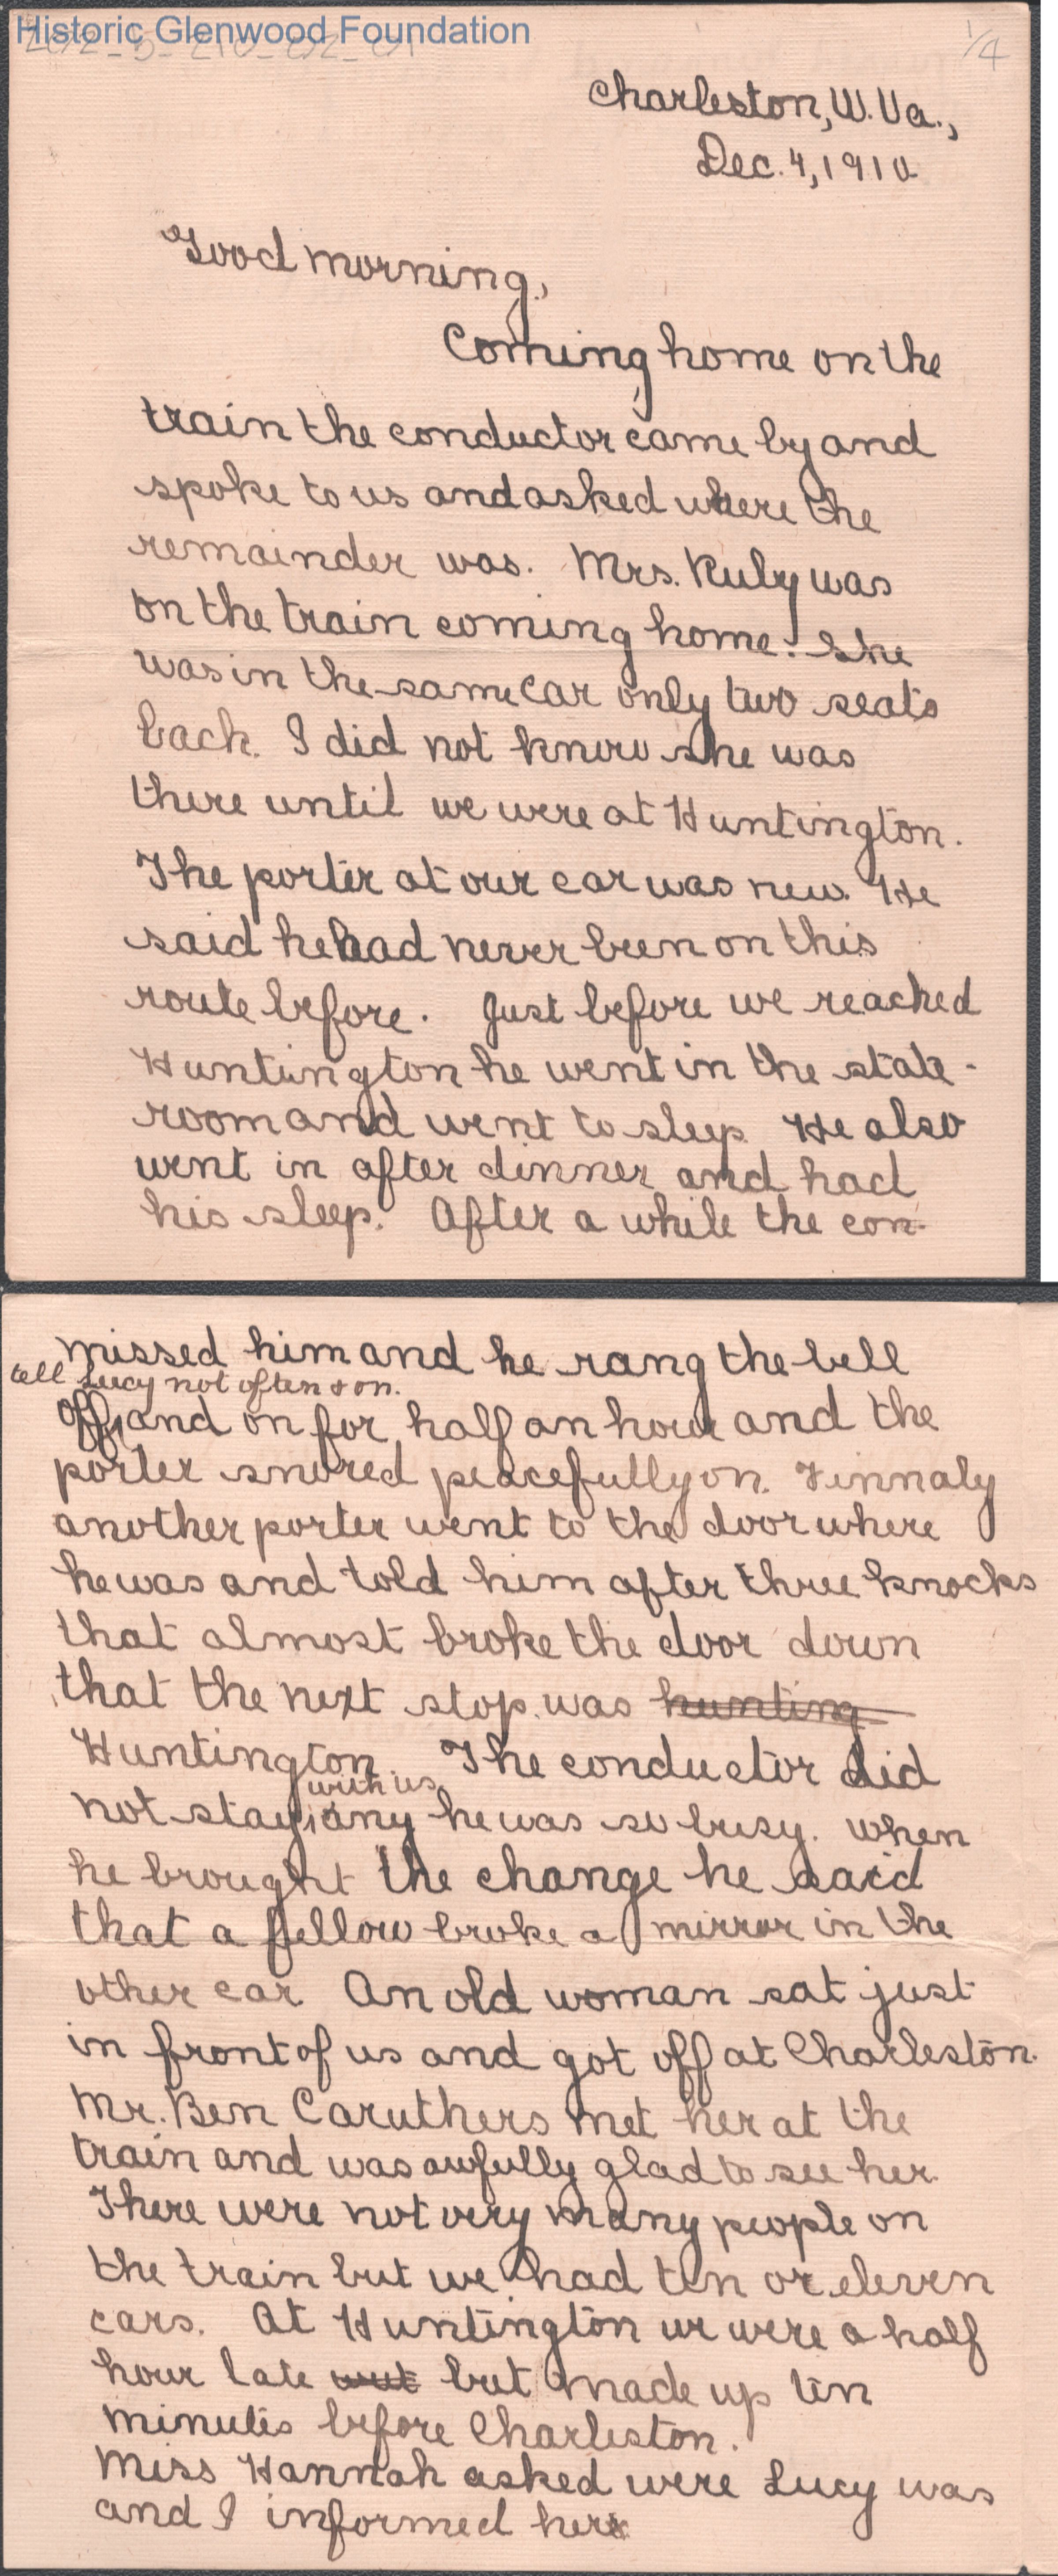 Historic Glenwood Foundation
1/4
Charleston, W. Va.,
Dec. 4, 1910
Good morning,
Coming home on the
train the conductor came by and
spoke to us and asked where the
remainder was. Mrs. Ruby was
on the train coming home. She
was in the same car only two seats
back. I did not know she was
there until we were at Huntington.
The porter at our car was new. He
said he had never been on this
route before. Just before we reached
Huntington he went in the state-
room and went to sleep. He also
went in after dinner and had
his sleep. After a while the con-
missed him and he rang the bell
tell Lucy not often & on.
off, and on for half an hour and the
porter snored peacefully on. Finnaly
another porter went to the door where
he was and told him after three knocks
that almost broke the door down
that the next stop was hunting
Huntington. The conductor did
with us
not stay any he was so busy. When
he brought the change he said
that a fellow broke a mirror in the
other car. An old woman sat just
in front of us and got off at Charleston.
Mr. Ben Caruthers met her at the
train and was awfully glad to see her.
There were not very many people on
the train but we had ten or eleven
cars. At Huntington we were a half
hour late but made up ten
minutes before Charleston.
Miss Hannah asked were Lucy was
and I informed her